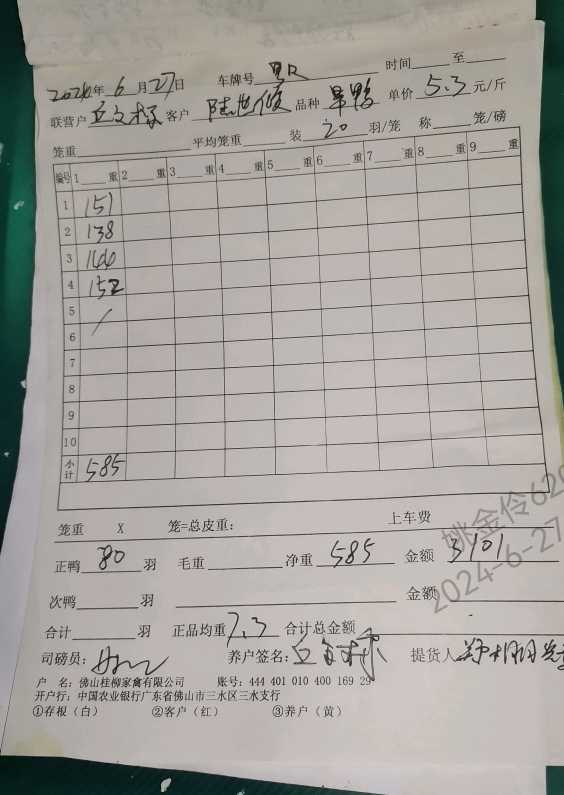 2024年6月27日 车牌号 时间 至
联营户 客户 陆世俊 品种 旱鸭 单价 5.3 元/斤
笼重 平均笼重 装 20 羽/笼 称 笼/磅
编号 1 重 2 重 3 重 4 重 5 重 6 重 7 重 8 重 9 重
1 151
2 138
3 144
4 152
5
6
7
8
9
10
小计 585
笼重 X 笼=总皮重: 上车费
正鸭 80 羽 毛重 净重 585 金额 3101
次鸭 羽 金额
合计 羽 正品均重 7.3 合计总金额
司磅员: 养户签名: 提货人
户 名: 佛山桂柳家禽有限公司 账号: 444 401 010 400 169 29
开户行: 中国农业银行广东省佛山市三水区三水支行
①存根（白） ②客户（红） ③养户（黄）
姚金伶62
2024-6-27